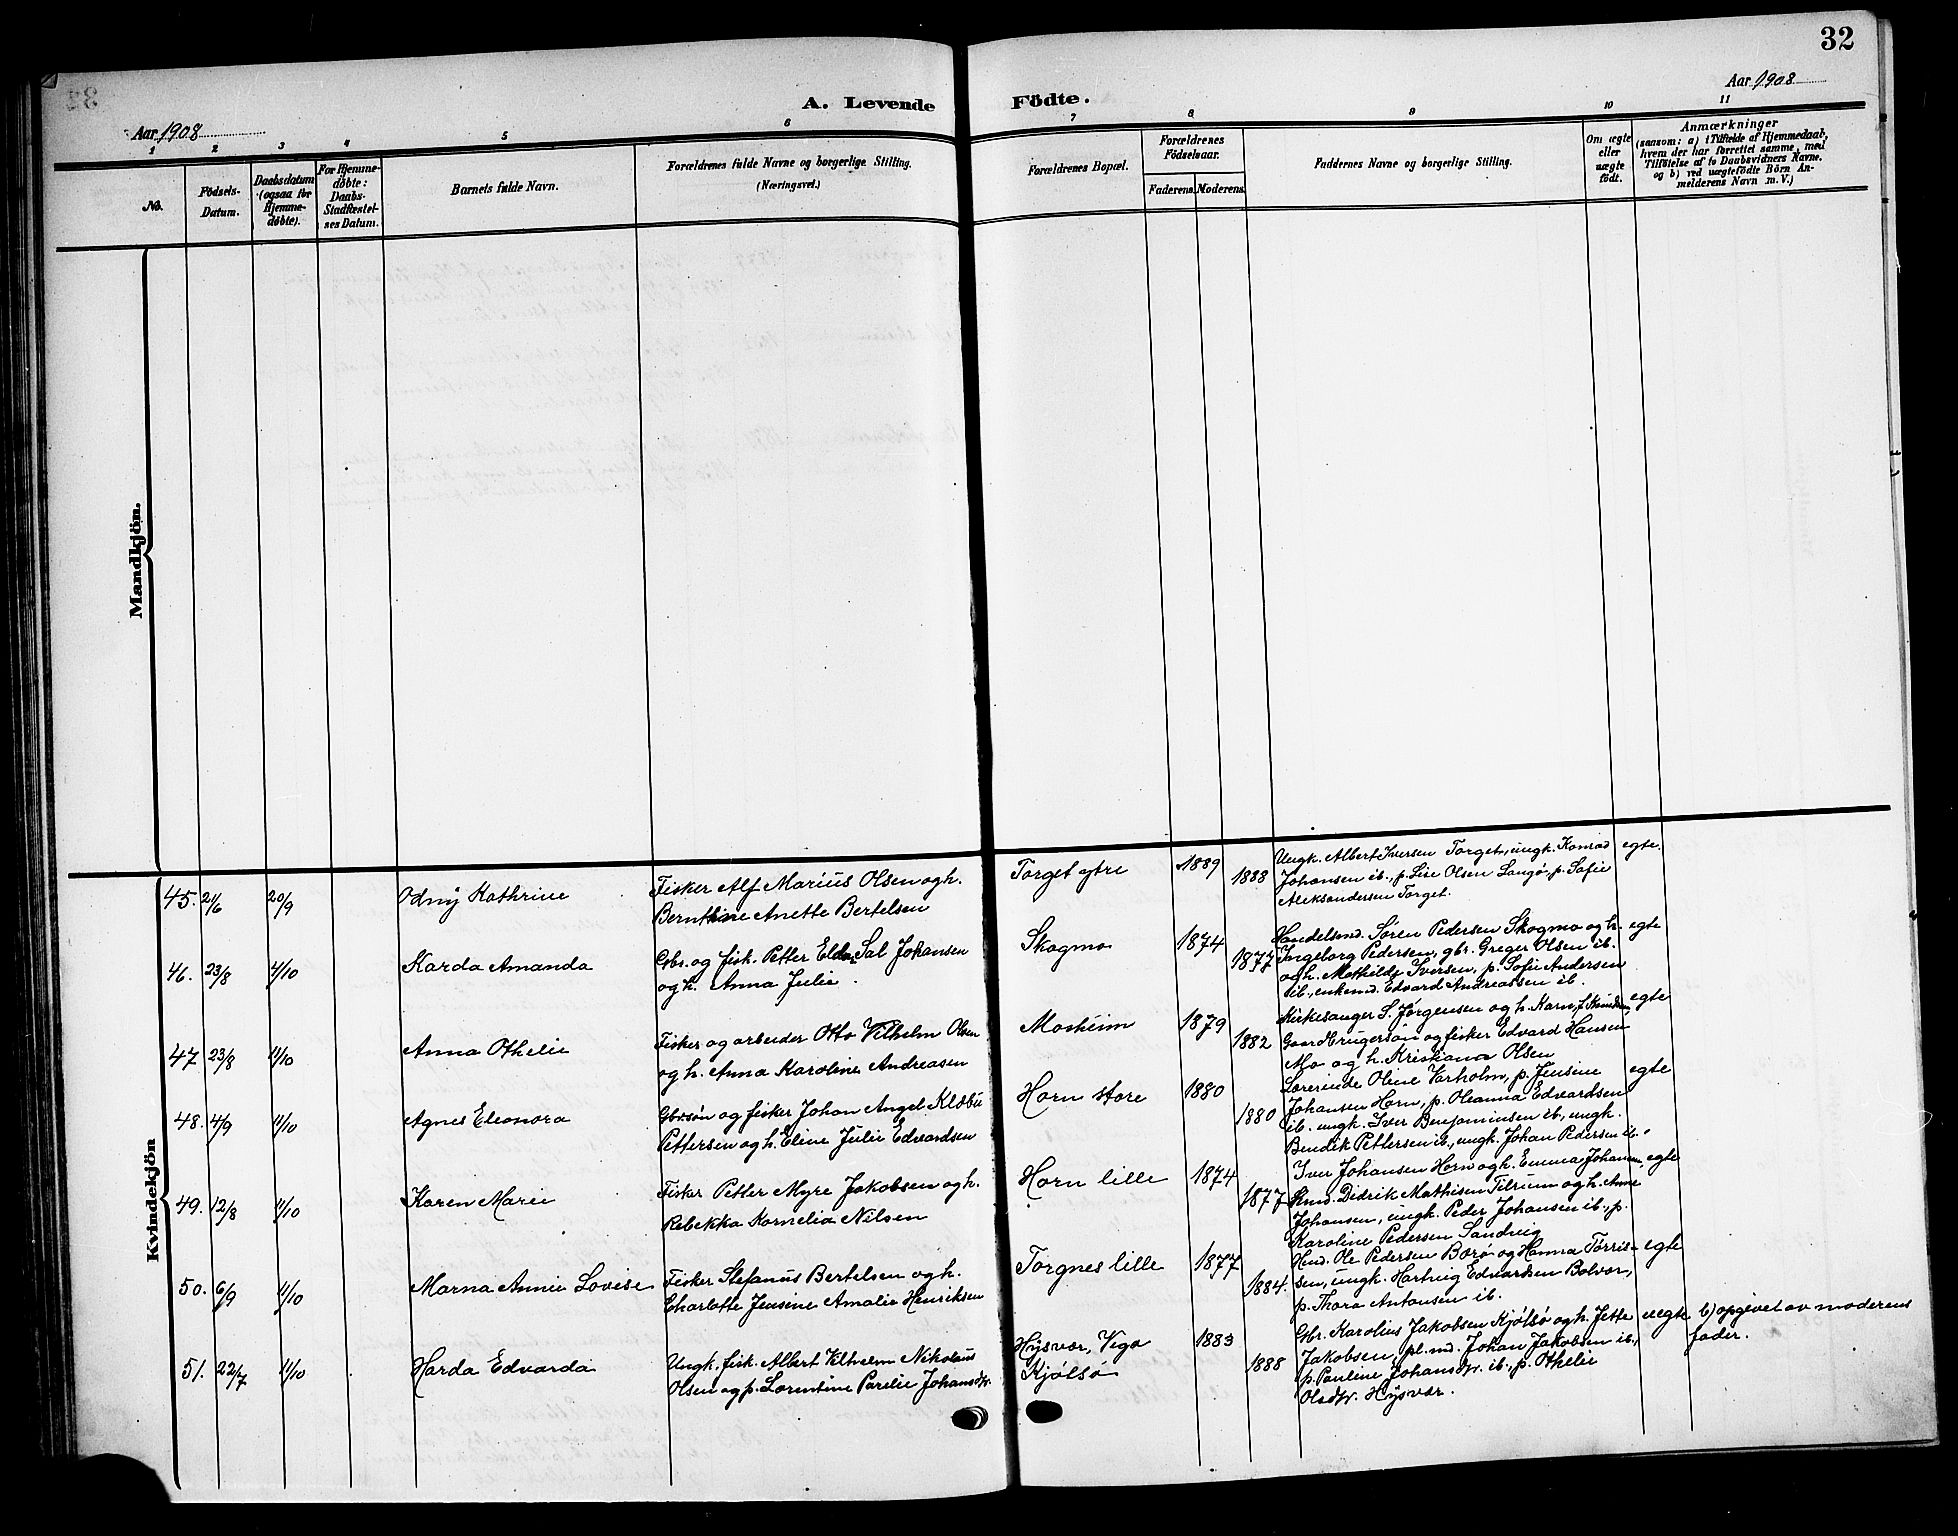 32
A. Levende Födte.
Aar 1908
Aar 1908
1 2 3 4 5 6 7 8 9 10 11
No.
Födsels-Datum.
Daabsdatum (ogsaa for Hjemme-døbte).
For Hjemme-døbte: Daabs-Stadfæstel-ses Datum.
Barnets fulde Navn.
Forældrenes fulde Navne og borgerlige Stilling.
(Næringsvei.)
Forældrenes Bopæl.
Forældrenes Födselsaar.
Faderens. Moderens.
Faddernes Navne og borgerlige Stilling.
Om ægte eller uægte födt.
Anmærkninger
(saasom: a) i Tilfælde af Hjemmedaab,
hvem der har forrettet samme, med
Tilföielse af to Daabsvidners Navne.
og b) ved uægtefödte Börn An-
melderens Navn m. V.)
Mandkjön.
Kvindekjön
45. 21/6 20/9 Odny Kathrine
Fisker Alf Marius Olsen og h.
Bernthine Anette Bertelsen
Torget ytre 1889 1888
Ungk. Albert Iversen Torget, ungk. Konrad
Johansen ib., p. Lise Olsen Langø, p. Sofie
Aleksandersen Torget.
egte.
46. 23/8 4/10 Karda Amanda
Gbr. og fisk. Petter Eldar Sal Johansen
og h. Anna Julie.
Skogmo 1874 1877
Handelsmd. Søren Pedersen Skogmo og h.
Ingeborg Pedersen, gbr. Greger Olsen ib.
og h. Mathilde Iversen, p. Sofie Andersen
ib., enkemd. Edvard Andreassen ib.
egte
47 23/8 11/10 Anna Othelie
Fisker og arbeider Otto Vilhelm Olsen
og h. Anna Karoline Andreasen
Mosheim 1879 1882
Kirkesanger S. Jørgensen og h. Karn, f. Knudsen,
Gaardbrugersøn og fisker Edvard Hansen
Mo og h. Kristiana Olsen
egte
48. 4/9 11/10 Agnes Eleonora
Gbr.søn og fisker Johan Angel Klæbu
Pettersen og h. Eline Julie Edvardsen
Horn store 1880 1880
Lærerinde Oline Varholm, p. Jensine
Johansen Horn, p. Oleanna Edvardsen
ib. ungk. Iver Benjaminsen ib., ungk.
Bendik Pettersen ib., ungk. Johan Pedersen ib.
egte
49. 12/8 11/10 Karen Marie
Fisker Petter Myre Jakobsen og h.
Rebekka Kornelia Nilsen
Horn lille 1874 1877
Iver Johansen Horn og h. Emma Johansen,
Didrik Mathisen Tilrum og h. Anne
Johansen, ungk. Peder Johansen ib., p.
Karoline Pedersen Sandvig
egte
50. 6/9 11/10 Marna Annie Lovise
Fisker Stefanus Bertelsen og h.
Charlotte Jensine Amalie Henriksen
Torgnes lille 1877 1884.
Hmd. Ole Pedersen Borø og Hanna Tørris-
sen, ungk. Hartvig Edvardsen Bolvær,
p. Thora Antonsen ib.
egte
51. 22/7 11/10 Harda Edvarda
Ungk. fisk. Albert Vilhelm Nikolaus
Olsen og p. Lorentine Parelie Johansdtr.
Hysvær, Vega
Kjølsø
1883 1888
Gbr. Karolius Jakobsen Kjølsø og h. Jette
Jakobsen, pl.md. Johan Jakobsen ib.,
p. Pauline Johansdtr. ib., p. Othelie
Olsdtr. Hysvær.
uegte
b) opgivet av moderens
fader.